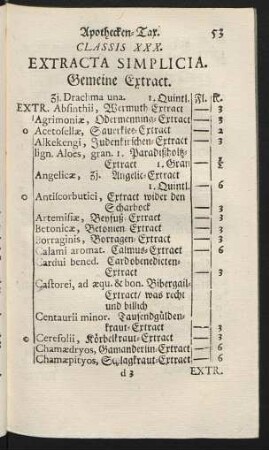 Apothecken-Tax. 53
CLASSIS XXX.
EXTRACTA SIMPLICIA.
Gemeine Extract.
Ʒj. Drachma una. 1. Quintl. Fl. Kr.
EXTR. Absinthii, Wermuth-Extract — 3
Agrimoniæ, Odermenning-Extract — 3
o Acetosellæ, Saurklee-Extract — 2
Alkekengi, Judenkirschen-Extract — 3
lign. Aloës, gran. 1. Paradißholtz-
Extract 1. Gran —
Angelicæ, Ʒj. Angelic-Extract
1. Quintl. — 6
o Antiscorbutici, Extract wider den
Scharbock — 3
Artemisiæ, Beyfuß-Extract — 3
Betonicæ, Betonien-Extract — 3
Borraginis, Borragen-Extract — 3
Calami aromat. Calmus-Extract — 6
Cardui bened. Cardobenedicten-
Extract — 3
Castorei, ad æqu. & bon. Bibergail-
Extract/ was recht
und billich
Centaurii minor. Tausendgülden-
kraut-Extract — 3
o Cerefolii, Körbelkraut-Extract — 3
Chamædryos, Gamanderlin-Extract — 6
Chamæpityos, Schlagkraut-Extract — 6
d 3 EXTR.